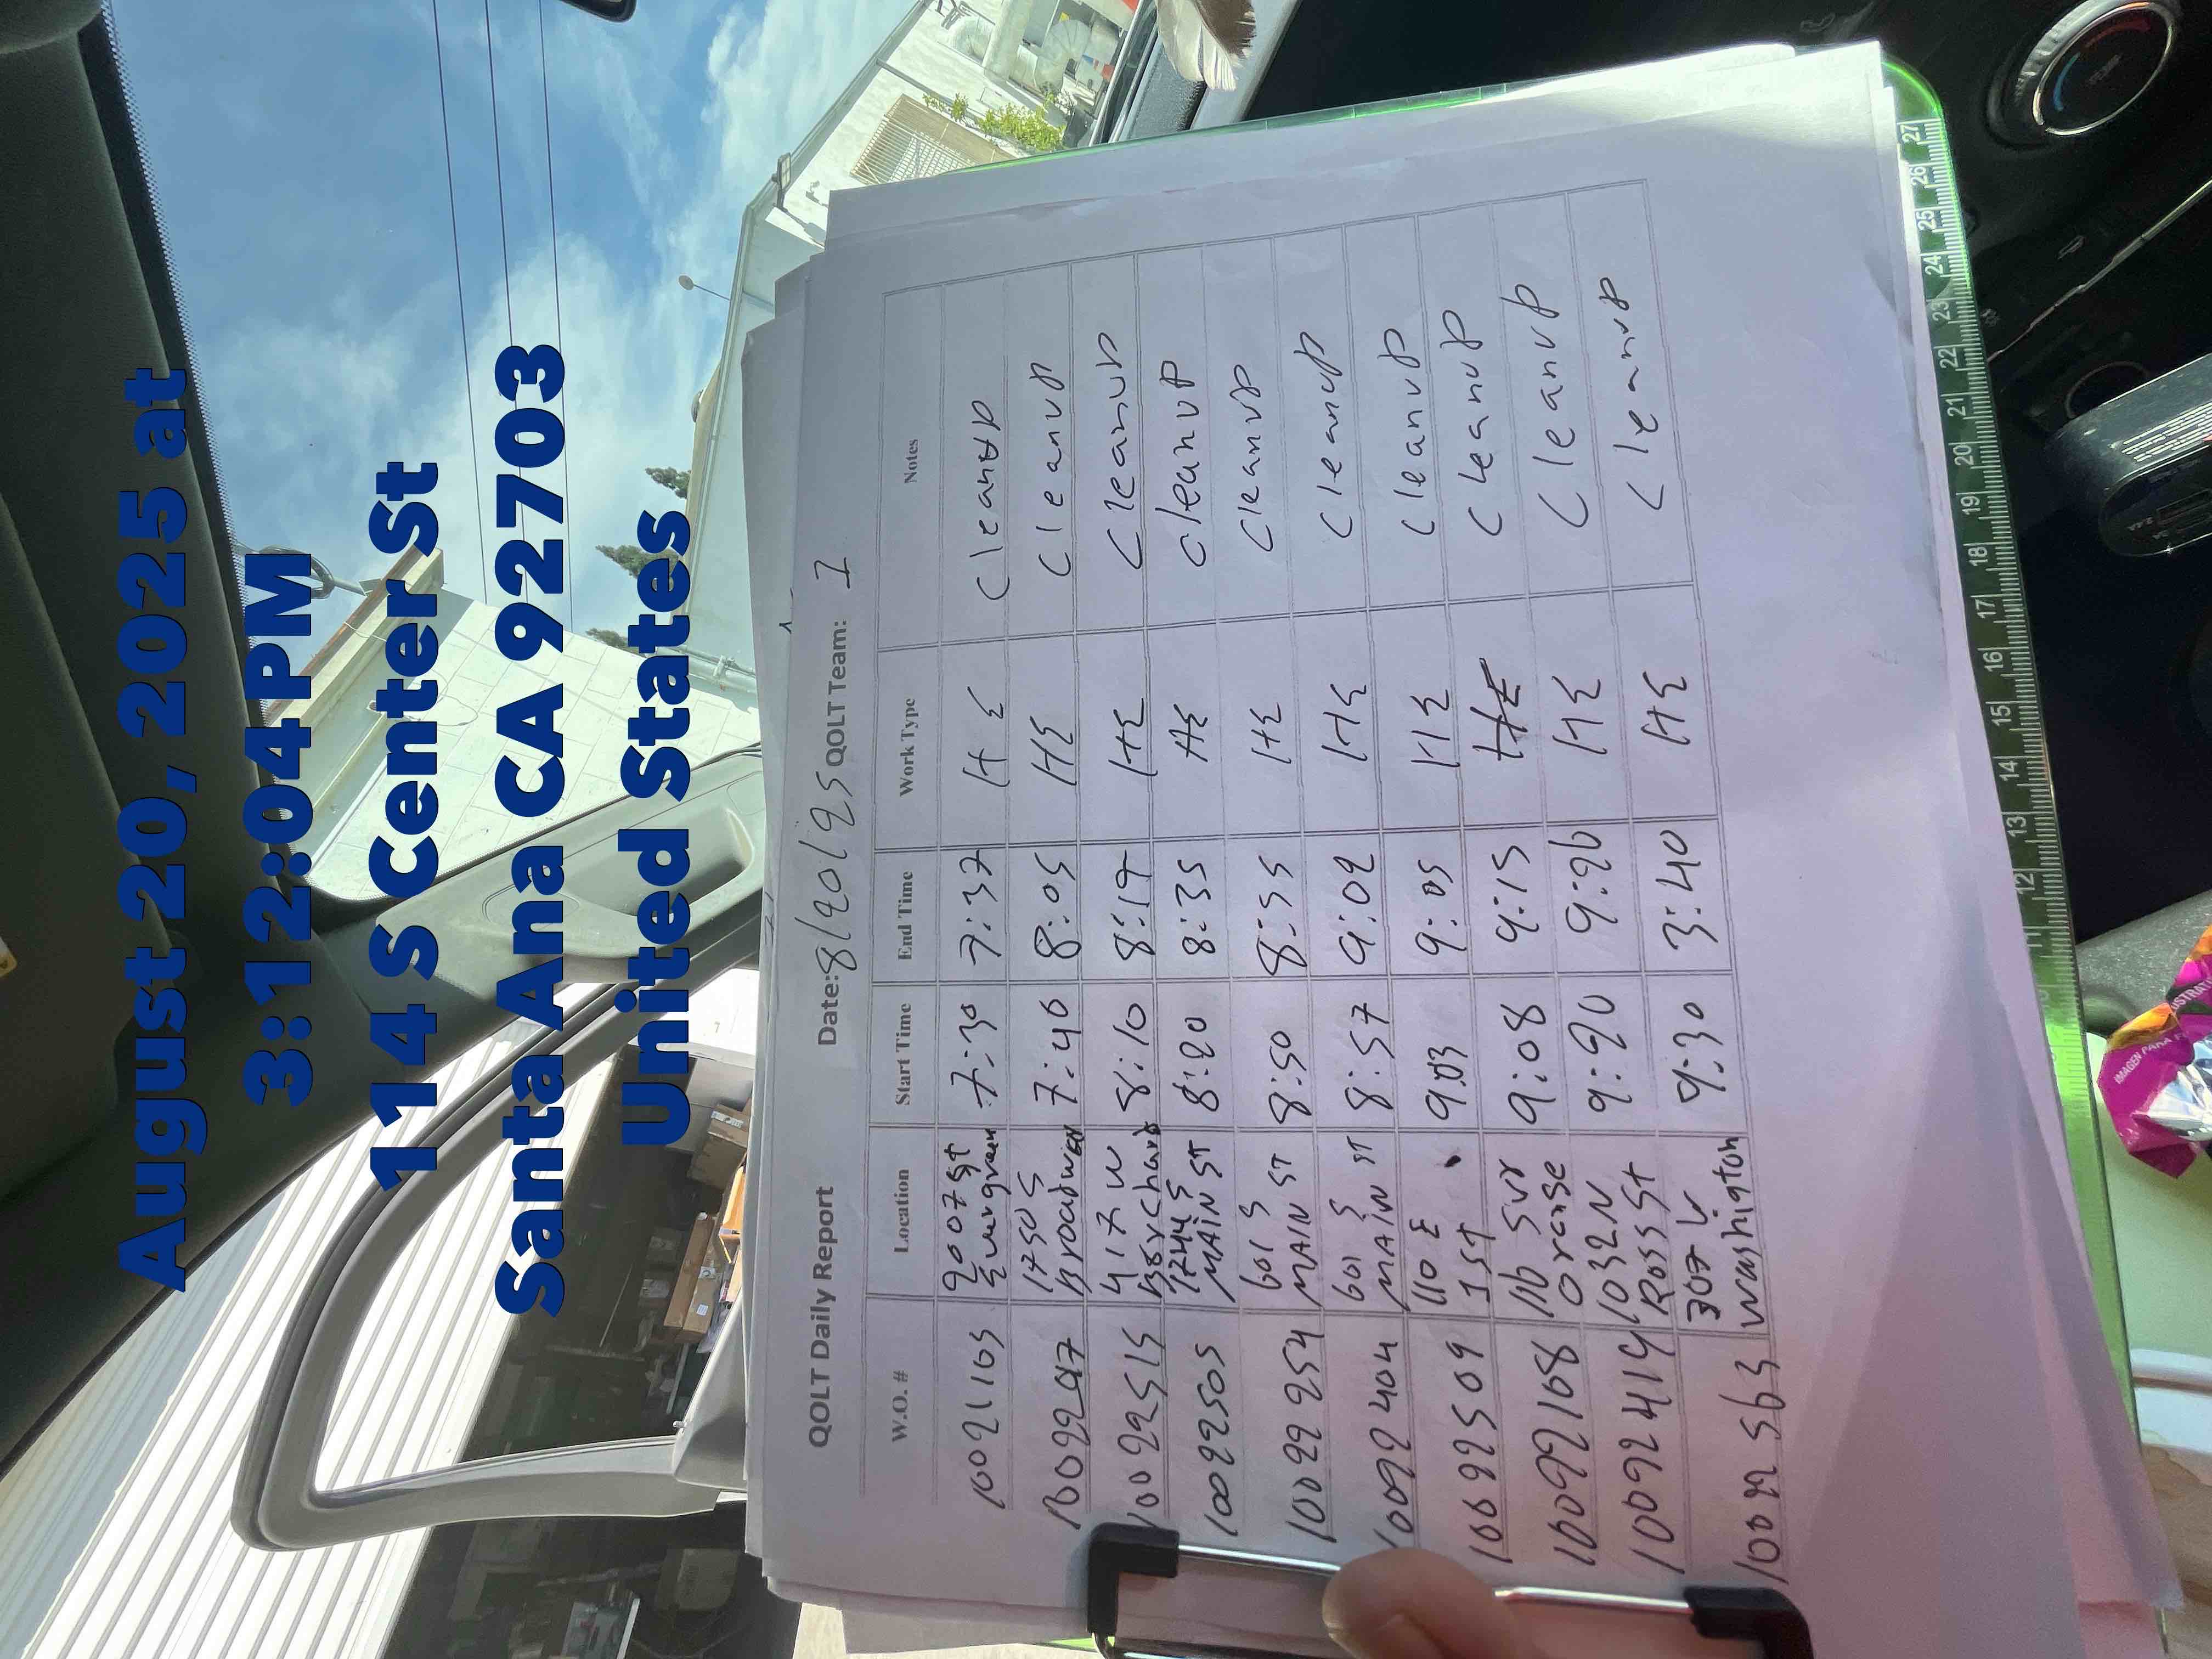 August 20, 2025 at
3:12:04 PM
114 S Center St
Santa Ana CA 92703
United States
QOLT Daily Report Date: 8/20/25 QOLT Team: 1
W.O. # Location Start Time End Time Work Type Notes
10021165 2007 St Evergreen 7:30 7:37 HE Cleanup
1750 S Broadway 7:40 8:05 HE Cleanup
10022515 417 W Borchard 8:10 8:17 HE Cleanup
10022505 1244 S MAIN ST 8:20 8:35 HE Cleanup
10022254 601 S MAIN ST 8:50 8:55 HE Cleanup
10022404 601 S MAIN ST 8:57 9:02 HE Cleanup
10022509 110 E 1ST 9:03 9:05 HE Cleanup
10022168 116 Orange 9:08 9:15 HE Cleanup
10022414 1032 N Ross St 9:20 9:26 HE Cleanup
10022563 307 Washigton 9:30 3:40 HE Cleanup
11 12 13 14 15 16 17 18 19 20 21 22 23 24 25 26 27
IMAGEN PARA